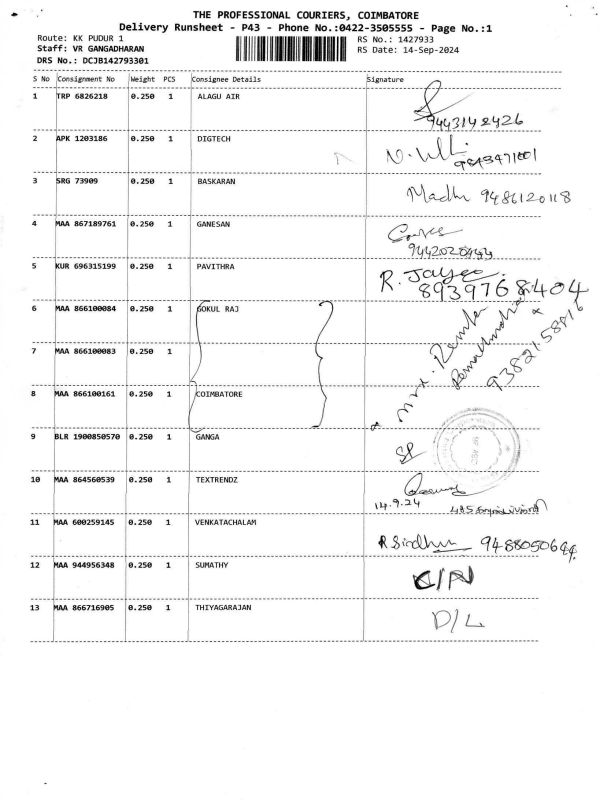 THE PROFESSIONAL COURIERS, COIMBATORE
Delivery Runsheet - P43 - Phone No.:0422-3505555 - Page No.:1
Route: KK PUDUR 1
RS No.: 1427933
Staff: VR GANGADHARAN
RS Date: 14-Sep-2024
DRS No.: DCJB142793301
S No Consignment No Weight PCS Consignee Details Signature
1 TRP 6826218 0.250 1 ALAGU AIR
9443142426
2 APK 1203186 0.250 1 DIGTECH
3 SRG 73909 0.250 1 BASKARAN
Madhu 9486120118
4 MAA 867189761 0.250 1 GANESAN
5 KUR 696315199 0.250 1 PAVITHRA
R. Jayee
8939768404
6 MAA 866100084 0.250 1 GOKUL RAJ
7 MAA 866100083 0.250 1
8 MAA 866100161 0.250 1 COIMBATORE
9 BLR 1900850570 0.250 1 GANGA
10 MAA 864560539 0.250 1 TEXTRENDZ
14.9.24
11 MAA 600259145 0.250 1 VENKATACHALAM
R Sindhu
12 MAA 944956348 0.250 1 SUMATHY
C/N
13 MAA 866716905 0.250 1 THIYAGARAJAN
D/L